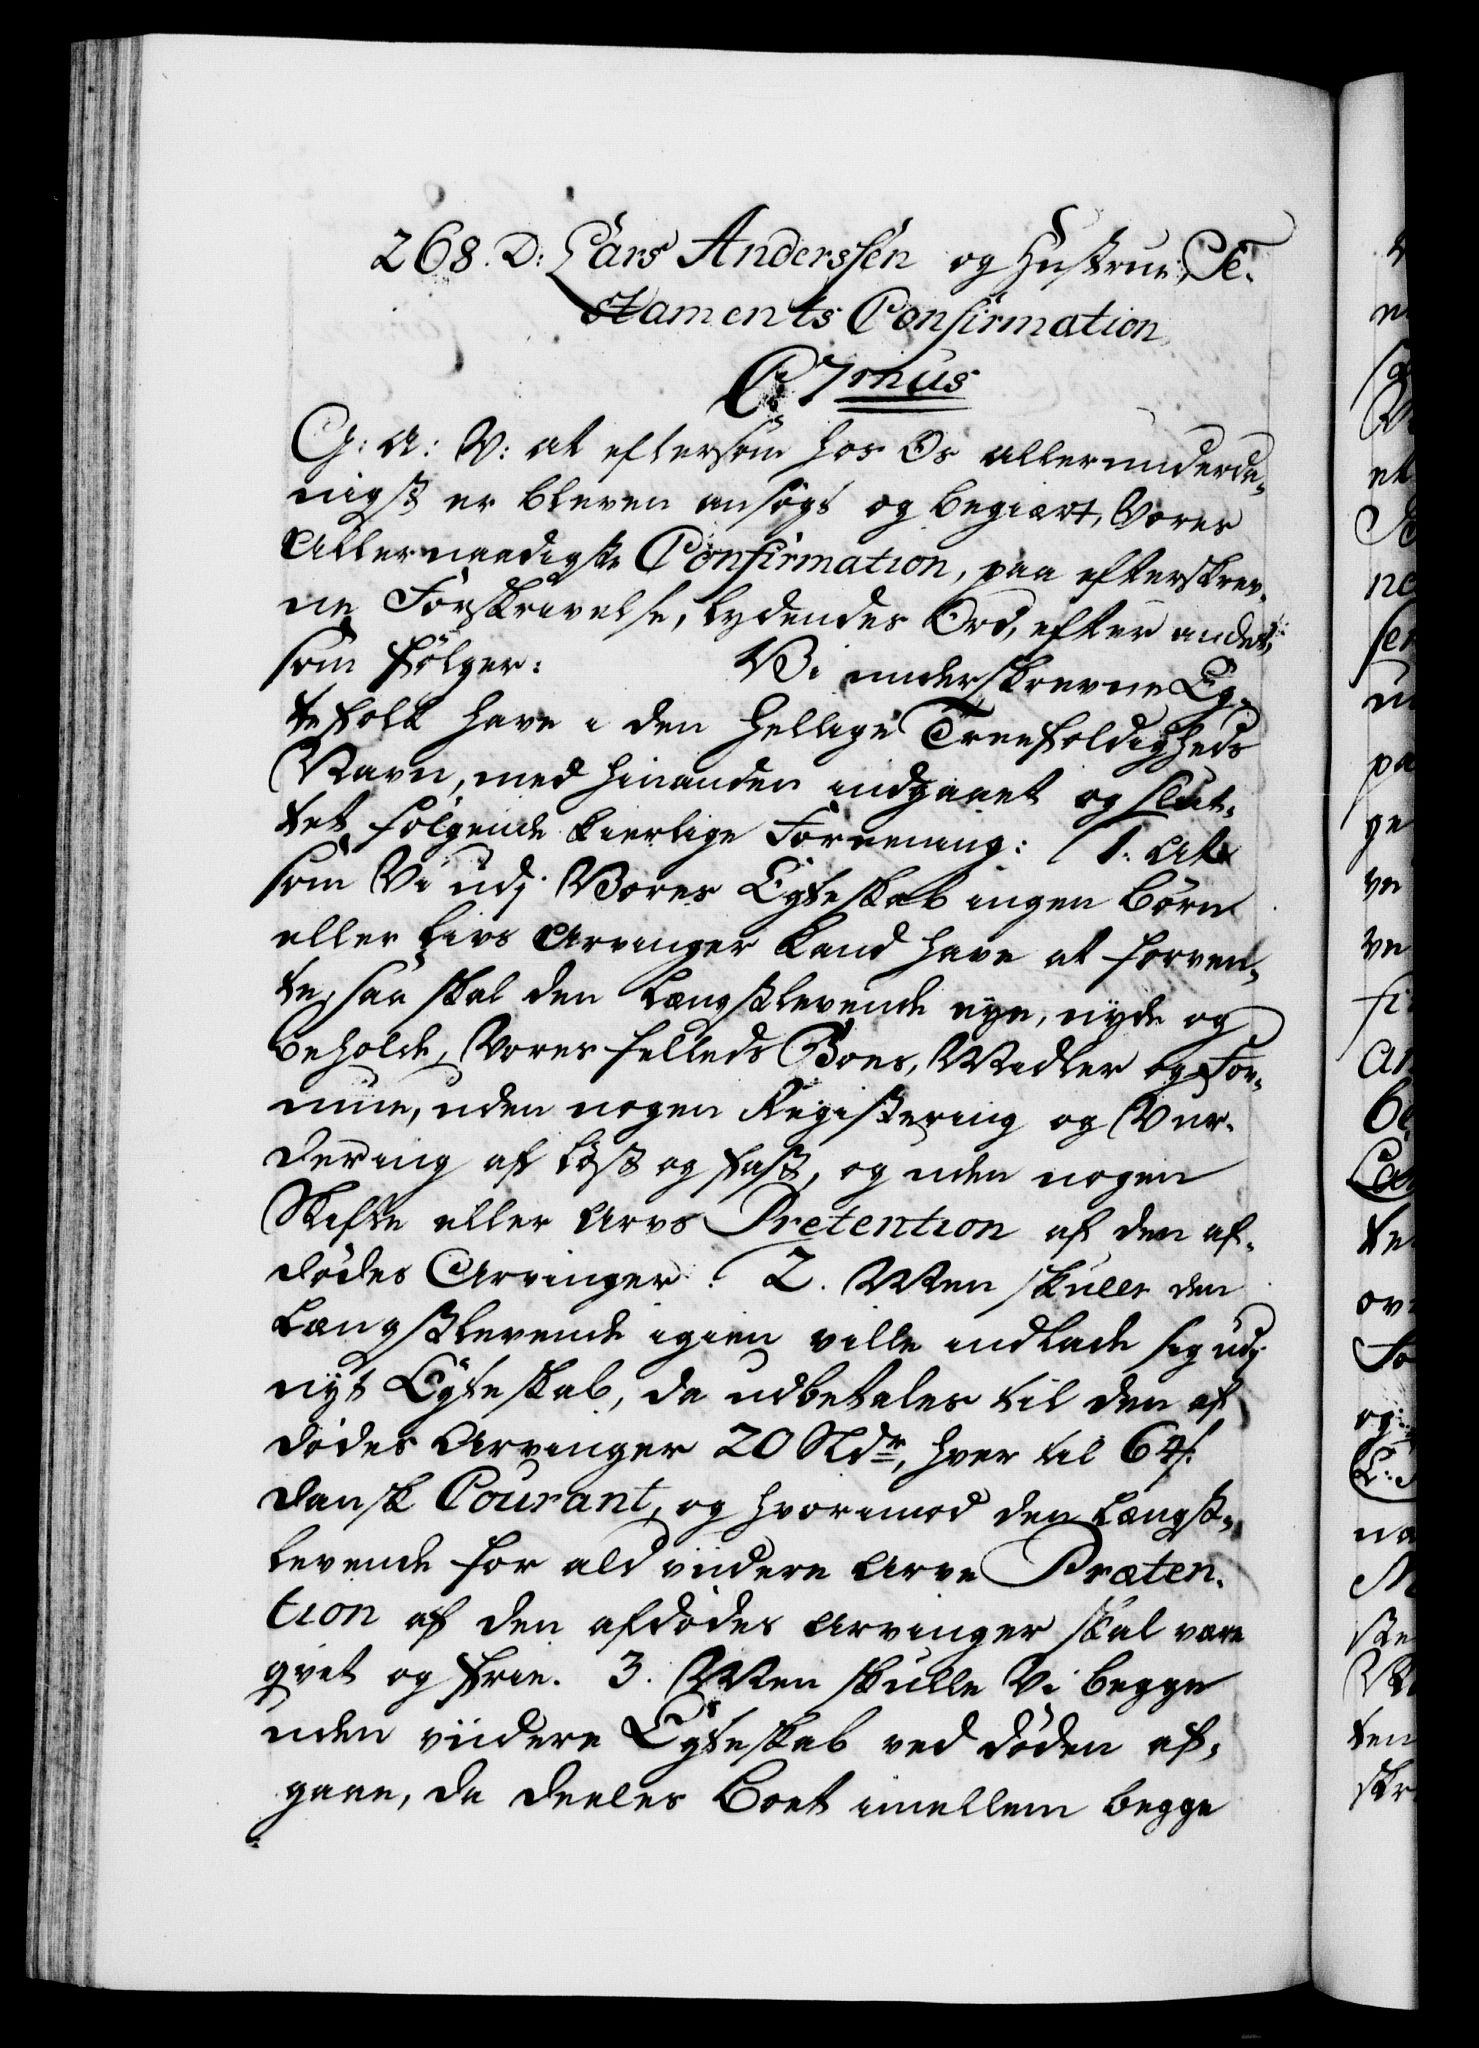 268. D: Lars Anderssen og Hustrue, Te-
staments Confirmation
C 7mus
G: A: V: at eftersom hos Os allerunderda-
nigst er bleven ansøgt og begiært, Vores
Allernaadigste Confirmation, paa efterskrev-
ne Forskrivelse, lydendes Ord, efter andet,
som følger: Vi underskrevne Eg-
tefolk have i den hellige Treefoldigheds
Navn, med hinanden indgaaet og slut-
tet følgende kierlige Foreening: 1. At
som Vi udj Vores Egteskab ingen Børn
eller Livs Arvinger kand have at forven-
te, saa skal den Længstlevende eye, nyde og
beholde, Vores felleds Boes, Midler og For-
mue, uden nogen Registering og Vur-
dering af Løst og Fast, og uden nogen
Skifte eller Arvs Pretention af den af-
dødes Arvinger. 2. Men skulle den
Længstlevende igien ville indlade sig udj
nyt Egteskab, da udbetales til den af
dødes Arvinger 20 Rdr, hver til 64 s.
dansk Courant, og hvorimod den Længst-
levende for ald viidere Arve Præten-
tion af den afdødes Arvinger skal være
qvit og frie. 3. Men skulle Vi begge
uden viidere Egteskab ved døden af-
gaae, da deeles Boet imellem begge